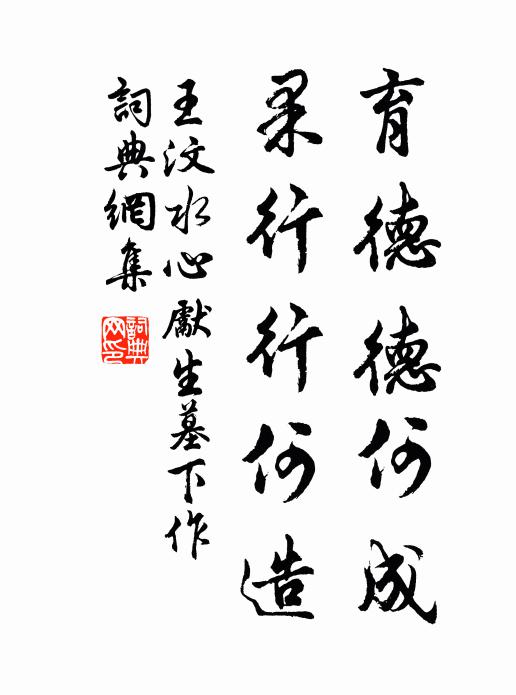 育德德何成
果行行何造
王汶水心獻生墓下作
詞典網集
詞典網印